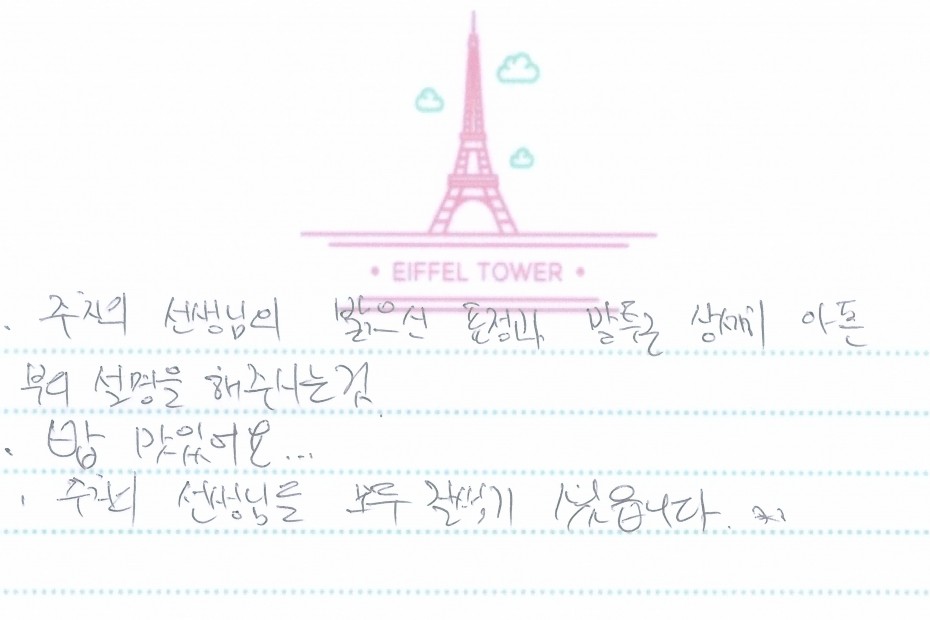 • EIFFEL TOWER •
. 주치의 선생님의 밝으신 표정과 말투로 상세히 아픈
부위 설명을 해주시는점.
. 밥 맛있어요...
. 주치의 선생님들 모두 잘생기 셨읍니다.